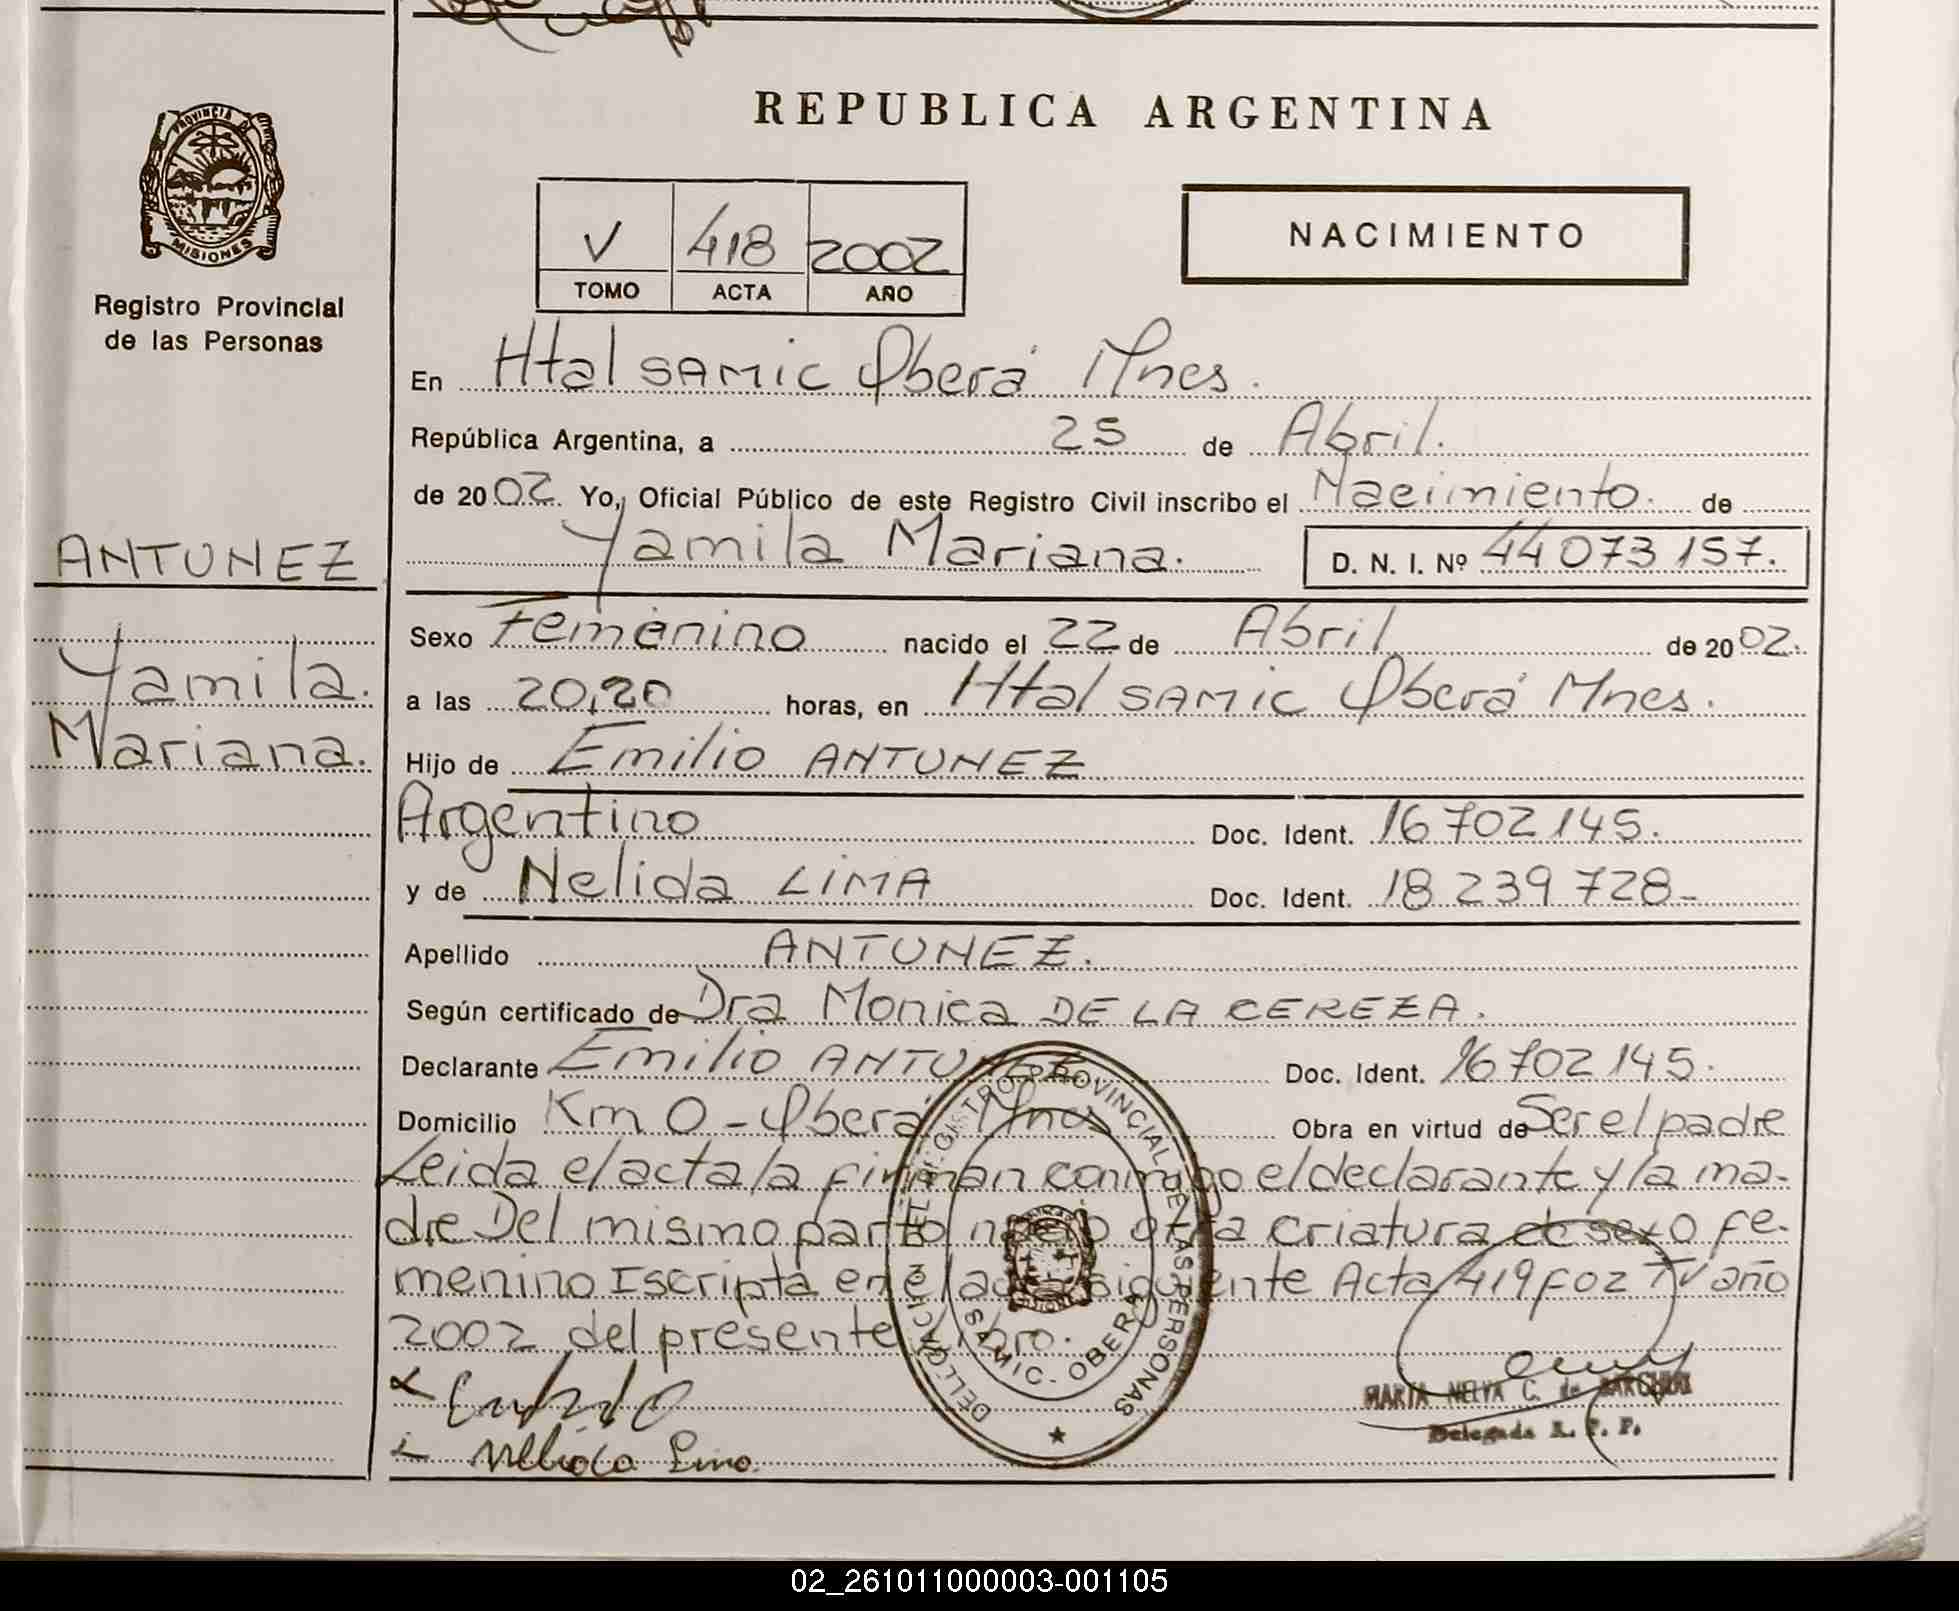 REPUBLICA ARGENTINA
PROVINCIA DE
MISIONES
Registro Provincial
de las Personas
V 418 2002
TOMO ACTA AÑO
NACIMIENTO
En Htal SAMIC Oberá Mnes.
República Argentina, a 25 de Abril.
de 2002. Yo, Oficial Público de este Registro Civil inscribo el Nacimiento. de
Yamila Mariana. D. N. I. Nº 44 073 157.
ANTUNEZ
Yamila.
Mariana.
Sexo Femenino nacido el 22 de Abril de 2002.
a las 20,20 horas, en Htal SAMIC Oberá Mnes.
Hijo de Emilio ANTUNEZ
Argentino Doc. Ident. 16 702 145.
y de Nelida LIMA Doc. Ident. 18 239 728-
Apellido ANTUNEZ.
Según certificado de Dra Monica DE LA CEREZA.
Declarante Emilio ANTUNEZ Doc. Ident. 16 702 145.
Domicilio Km 0 - Oberá Mnes Obra en virtud de Ser el padre
Leida el acta la firman conmigo el declarante y la ma-
dre Del mismo parto nacio otra criatura de sexo fe-
menino Iscripta en el acta siguiente Acta 419 F02 TV año
2002 del presente libro.
REGISTRO PROVINCIAL DE LAS PERSONAS
SAMIC - OBERA
MISIONES
Nelida Lima
MARIA NELVA C. de
Delegada R. P. P.
02_261011000003-001105